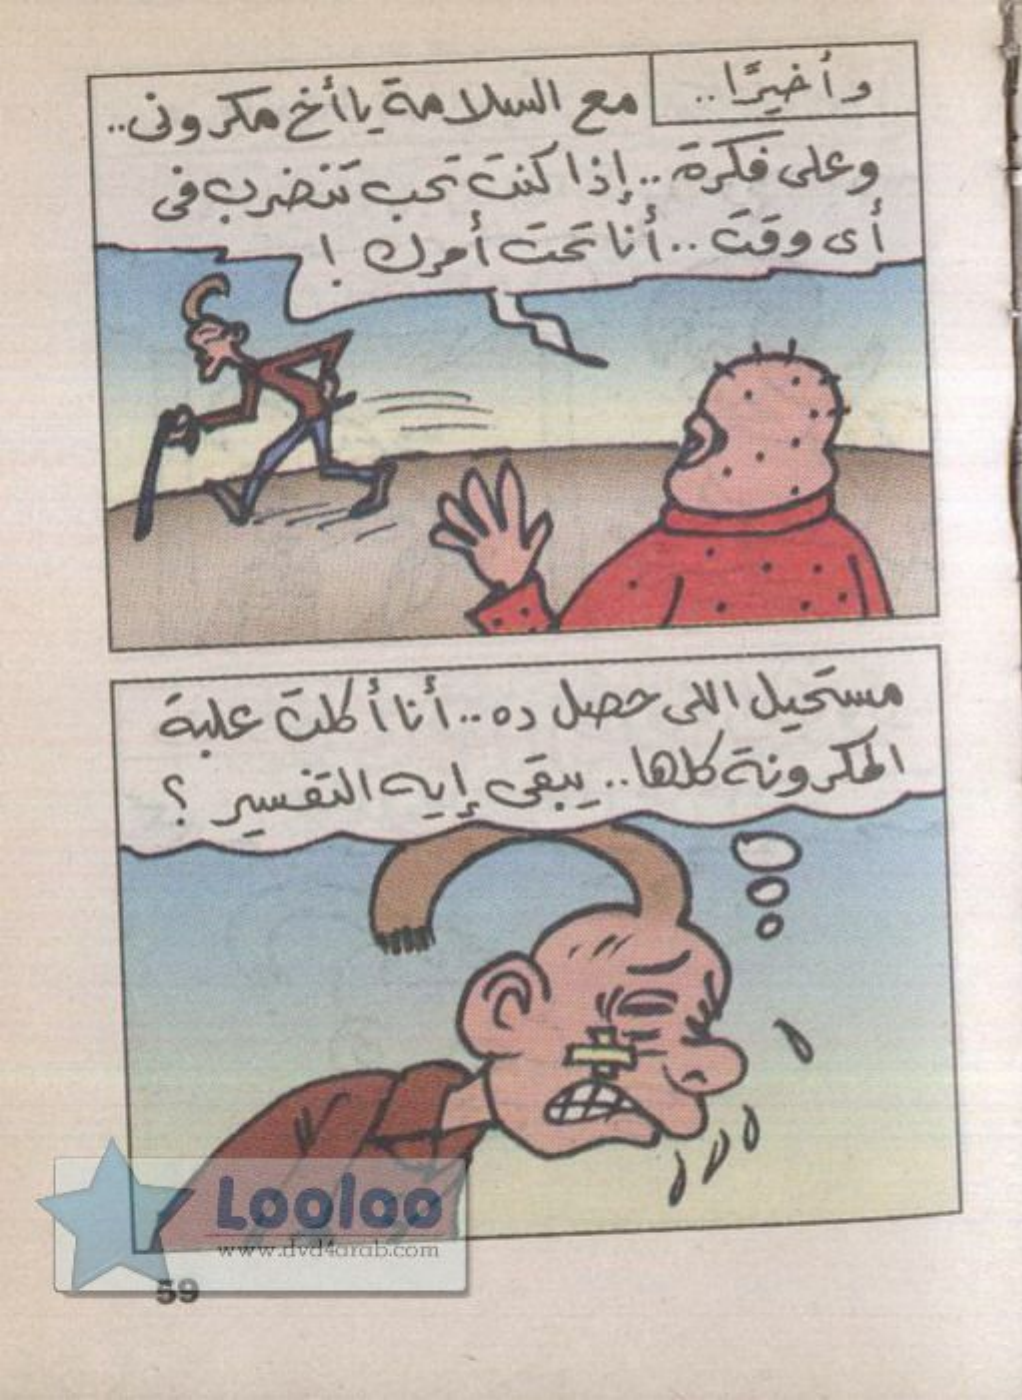 وأخيرًا..
مع السلامة ياأخ مكرونى..
وعلى فكرة.. إذا كنت تحب تتضرب فى
أى وقت.. أنا تحت أمرك !
مستحيل اللى حصل ده.. أنا أكلت علبة
المكرونة كلها.. يبقى إيه التفسير ؟
Looloo
www.dvd4arab.com
59